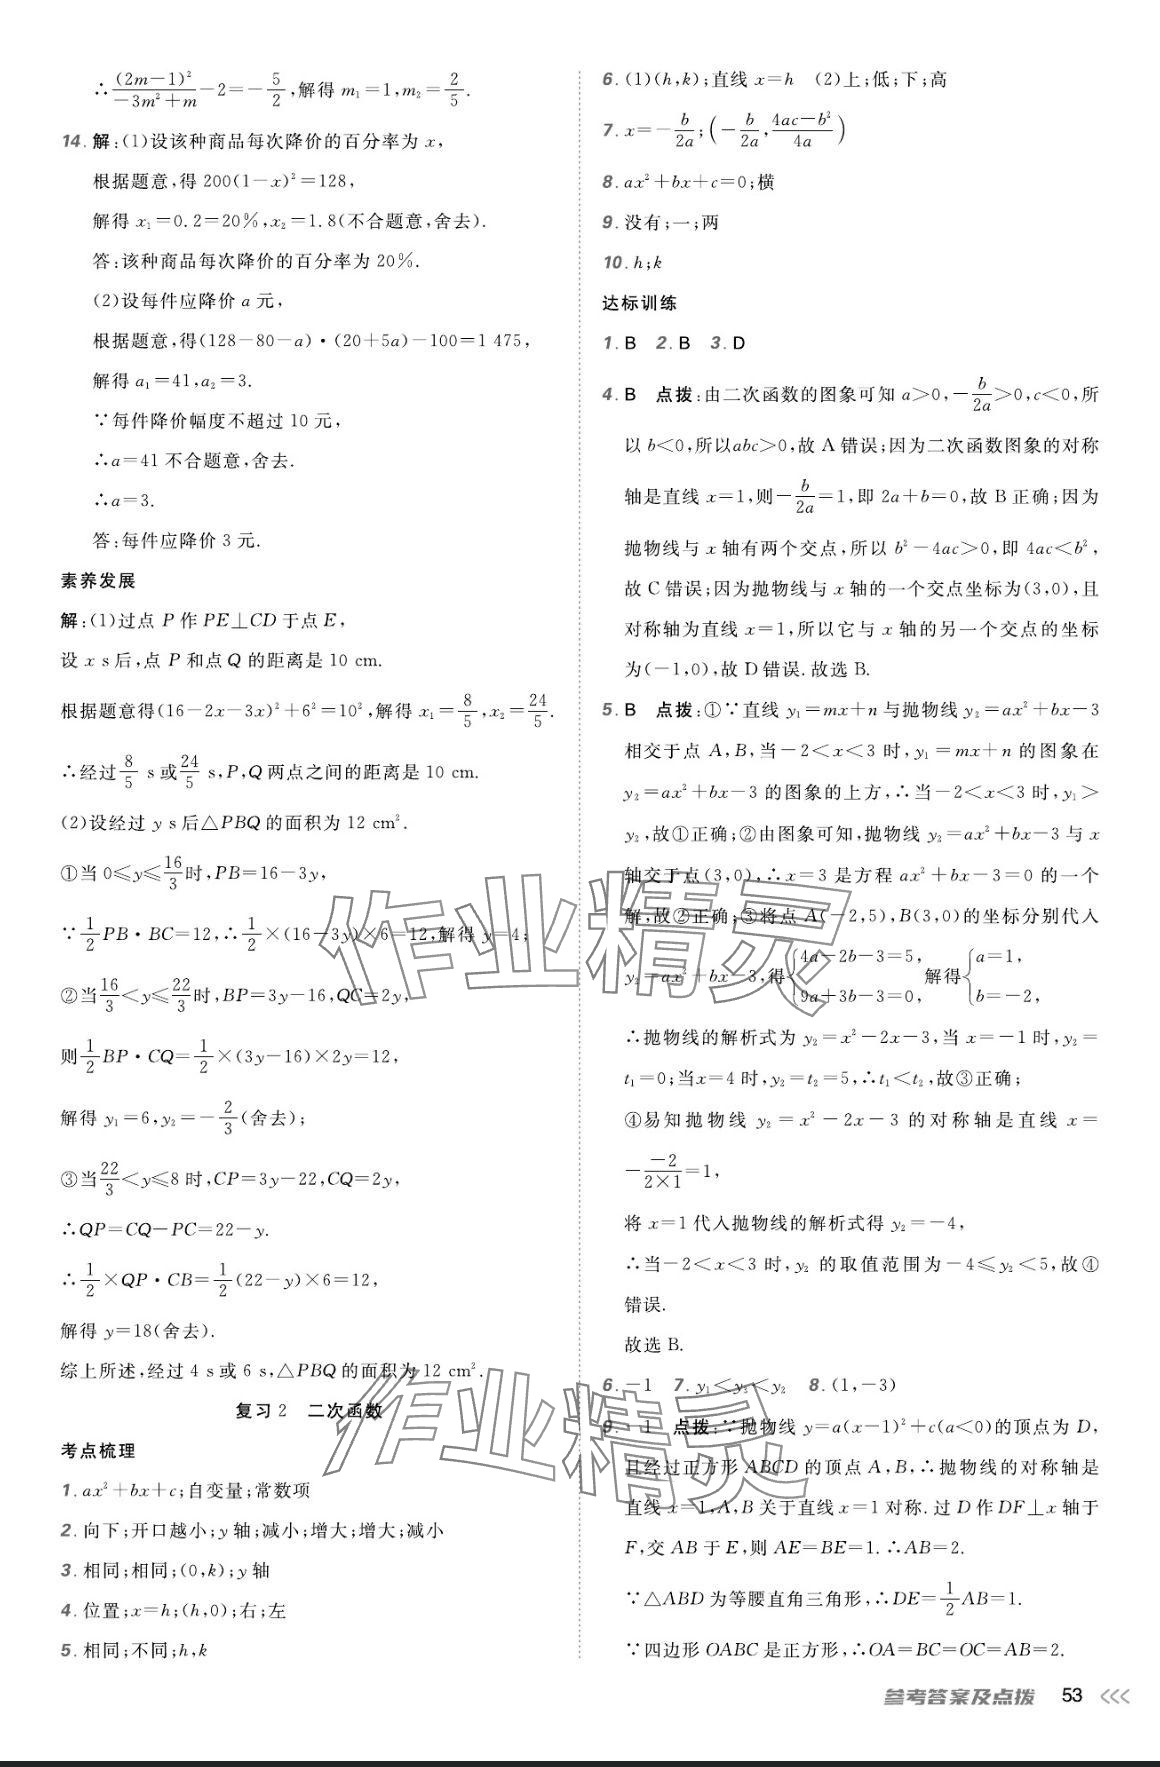 ∴(2m−1)²/(−3m²+m)−2=−5/2,解得 m₁=1,m₂=2/5.
14. 解:(1)设该种商品每次降价的百分率为 x,
根据题意,得 200(1−x)²=128,
解得 x₁=0.2=20%,x₂=1.8(不合题意,舍去).
答:该种商品每次降价的百分率为 20%.
(2)设每件应降价 a 元,
根据题意,得(128−80−a)·(20+5a)−100=1 475,
解得 a₁=41,a₂=3.
∵每件降价幅度不超过 10 元,
∴a=41 不合题意,舍去.
∴a=3.
答:每件应降价 3 元.
素养发展
解:(1)过点 P 作 PE⊥CD 于点 E,
设 x s 后,点 P 和点 Q 的距离是 10 cm.
根据题意得(16−2x−3x)²+6²=10²,解得 x₁=8/5,x₂=24/5.
∴经过 8/5 s 或 24/5 s,P,Q 两点之间的距离是 10 cm.
(2)设经过 y s 后△PBQ 的面积为 12 cm².
①当 0≤y≤16/3 时,PB=16−3y,
∵1/2 PB·BC=12,∴1/2×(16−3y)×6=12,解得 y=4;
②当 16/3<y≤22/3 时,BP=3y−16,QC=2y,
则 1/2 BP·CQ=1/2×(3y−16)×2y=12,
解得 y₁=6,y₂=−2/3(舍去);
③当 22/3<y≤8 时,CP=3y−22,CQ=2y,
∴QP=CQ−PC=22−y.
∴1/2×QP·CB=1/2(22−y)×6=12,
解得 y=18(舍去).
综上所述,经过 4 s 或 6 s,△PBQ 的面积为 12 cm².
复习 2 二次函数
考点梳理
1. ax²+bx+c;自变量;常数项
2. 向下;开口越小;y 轴;减小;增大;增大;减小
3. 相同;相同;(0,k);y 轴
4. 位置;x=h;(h,0);右;左
5. 相同;不同;h,k
6. (1)(h,k);直线 x=h (2)上;低;下;高
7. x=−b/2a;(−b/2a,(4ac−b²)/4a)
8. ax²+bx+c=0;横
9. 没有;一;两
10. h;k
达标训练
1. B 2. B 3. D
4. B 点拨:由二次函数的图象可知 a>0,−b/2a>0,c<0,所
以 b<0,所以abc>0,故 A 错误;因为二次函数图象的对称
轴是直线 x=1,则−b/2a=1,即 2a+b=0,故 B 正确;因为
抛物线与 x 轴有两个交点,所以 b²−4ac>0,即 4ac<b²,
故 C 错误;因为抛物线与 x 轴的一个交点坐标为(3,0),且
对称轴为直线 x=1,所以它与 x 轴的另一个交点的坐标
为(−1,0),故 D 错误.故选 B.
5. B 点拨:①∵直线 y₁=mx+n 与抛物线 y₂=ax²+bx−3
相交于点 A,B,当−2<x<3 时,y₁=mx+n 的图象在
y₂=ax²+bx−3 的图象的上方,∴当−2<x<3 时,y₁>
y₂,故①正确;②由图象可知,抛物线 y₂=ax²+bx−3 与 x
轴交于点(3,0),∴x=3 是方程 ax²+bx−3=0 的一个
解,故②正确;③将点 A(−2,5),B(3,0)的坐标分别代入
y₂=ax²+bx−3,得{4a−2b−3=5, 9a+3b−3=0, 解得{a=1, b=−2,
∴抛物线的解析式为 y₂=x²−2x−3,当 x=−1 时,y₂=
t₁=0;当x=4 时,y₂=t₂=5,∴t₁<t₂,故③正确;
④易知抛物线 y₂=x²−2x−3 的对称轴是直线 x=
−(−2)/(2×1)=1,
将 x=1 代入抛物线的解析式得 y₂=−4,
∴当−2<x<3 时,y₂ 的取值范围为−4≤y₂<5,故④
错误.
故选 B.
6. −1 7. y₁<y₃<y₂ 8. (1,−3)
9. −1 点拨:∵抛物线 y=a(x−1)²+c(a<0)的顶点为 D,
且经过正方形 ABCD 的顶点 A,B,∴抛物线的对称轴是
直线 x=1,A,B 关于直线 x=1 对称.过 D 作 DF⊥x 轴于
F,交 AB 于 E,则 AE=BE=1.∴AB=2.
∵△ABD 为等腰直角三角形,∴DE=1/2 AB=1.
∵四边形 OABC 是正方形,∴OA=BC=OC=AB=2.
作业精灵
作业精灵
参考答案及点拨 53